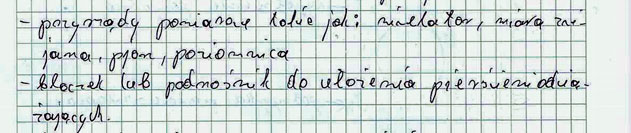 - przyrządy pomiarowe takie jak: niwelator, miara zwi-
jana, pion, poziomnica
- bloczek lub podnośnik do ułożenia pierścieni odcią-
żających.